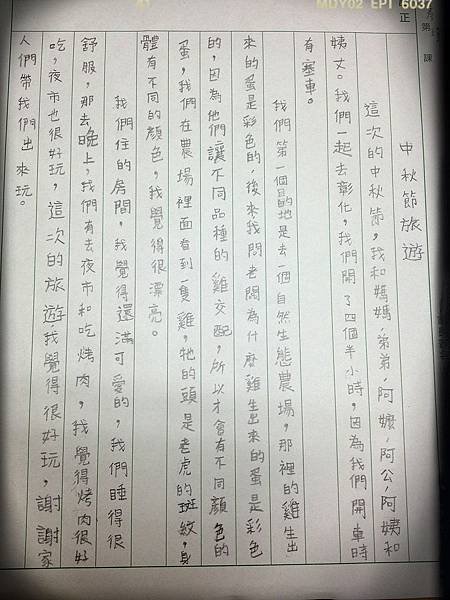 MDY02 EPT 6037
正
第 課
中秋節旅遊
這次的中秋節,我和媽媽,弟弟,阿嬤,阿公,阿姨和
姨丈。我們一起去彰化,我們開了四個半小時,因為我們開車時
有塞車。
我們第一個目的地是去一個自然生態農場,那裡的雞生出
來的蛋是彩色的,後來我問老闆為什麼雞生出來的蛋是彩色
的,因為他們讓不同品種的雞交配,所以才會有不同顏色的
蛋,我們在農場裡面看到一隻雞,牠的頭是老虎的斑紋,身
體有不同的顏色,我覺得很漂亮。
我們住的房間,我覺得還滿可愛的,我們睡得很
舒服,那去晚上,我們有去夜市和吃烤肉,我覺得烤肉很好
吃,夜市也很好玩,這次的旅遊,我覺得很好玩,謝謝家
人們帶我們出來玩。